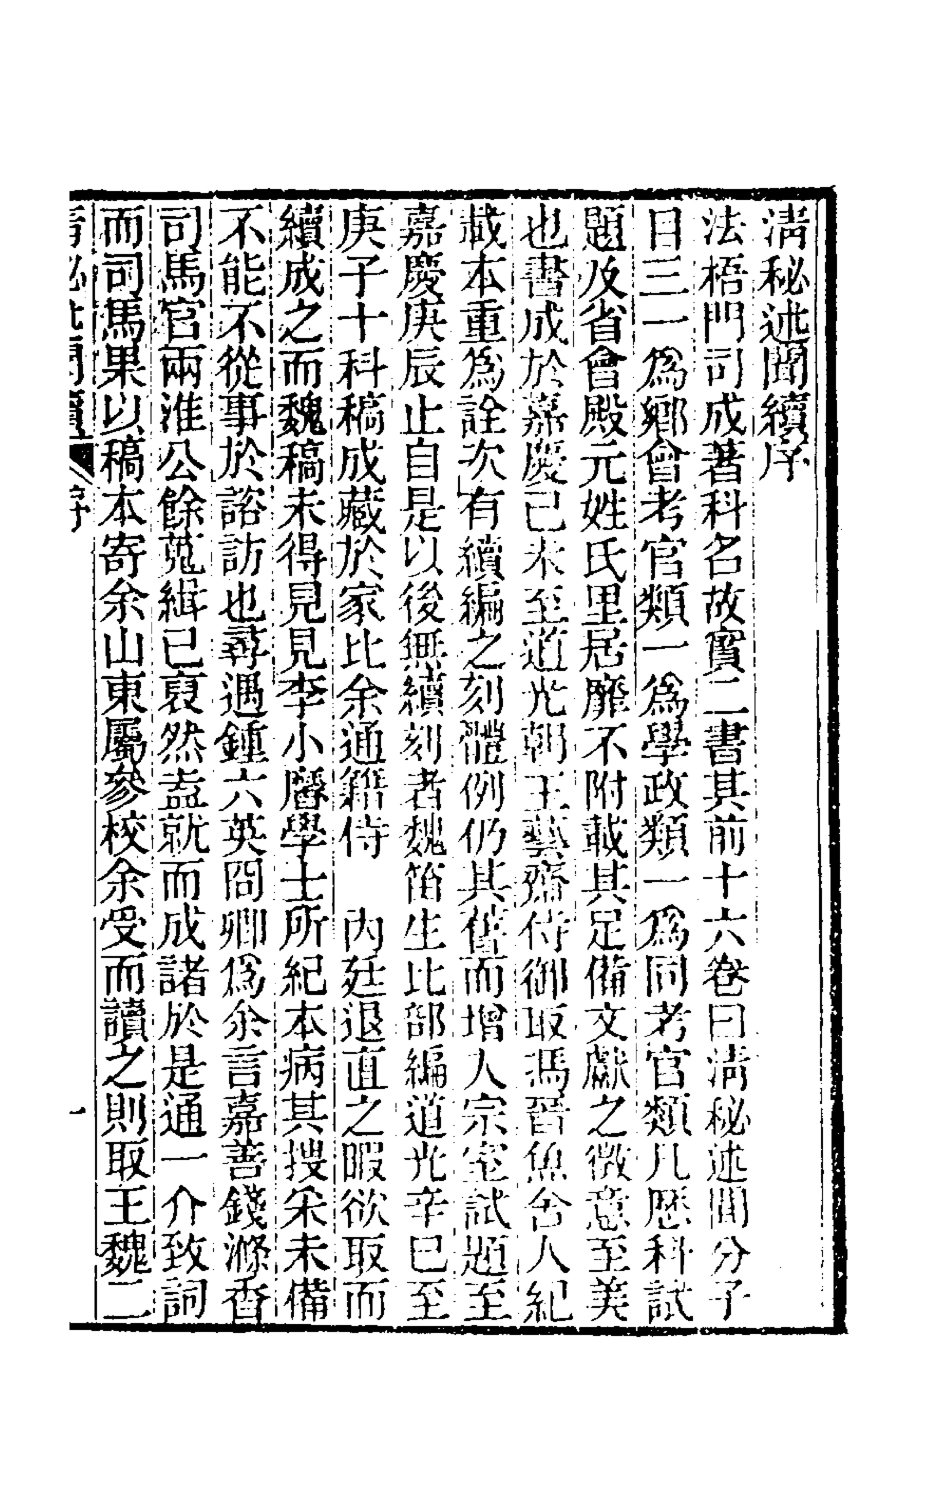 清秘述聞續序
法梧門司成著科名故實二書其前十六卷曰清秘述聞分子
目三一爲鄉會考官類一爲學政類一爲同考官類凡歷科試
題及省會殿元姓氏里居靡不附載其足備文獻之徵意至美
也書成於嘉慶己未至道光朝王藝齋侍御取馮晉魚舍人紀
載本重爲詮次有續編之刻體例仍其舊而增人宗室試題至
嘉慶庚辰止自是以後無續刻者魏笛生比部編道光辛巳至
庚子十科稿成藏於家比余通籍侍　內廷退直之暇欲取而
續成之而魏稿未得見見李小麿學士所紀本病其搜采未備
不能不從事於諮訪也尋遇鍾六英冏卿爲余言嘉善錢滌香
司馬官兩淮公餘蒐緝已裒然盍就而成諸於是通一介致詞
而司馬果以稿本寄余山東屬參校余受而讀之則取王魏二
清秘述聞續　序　一